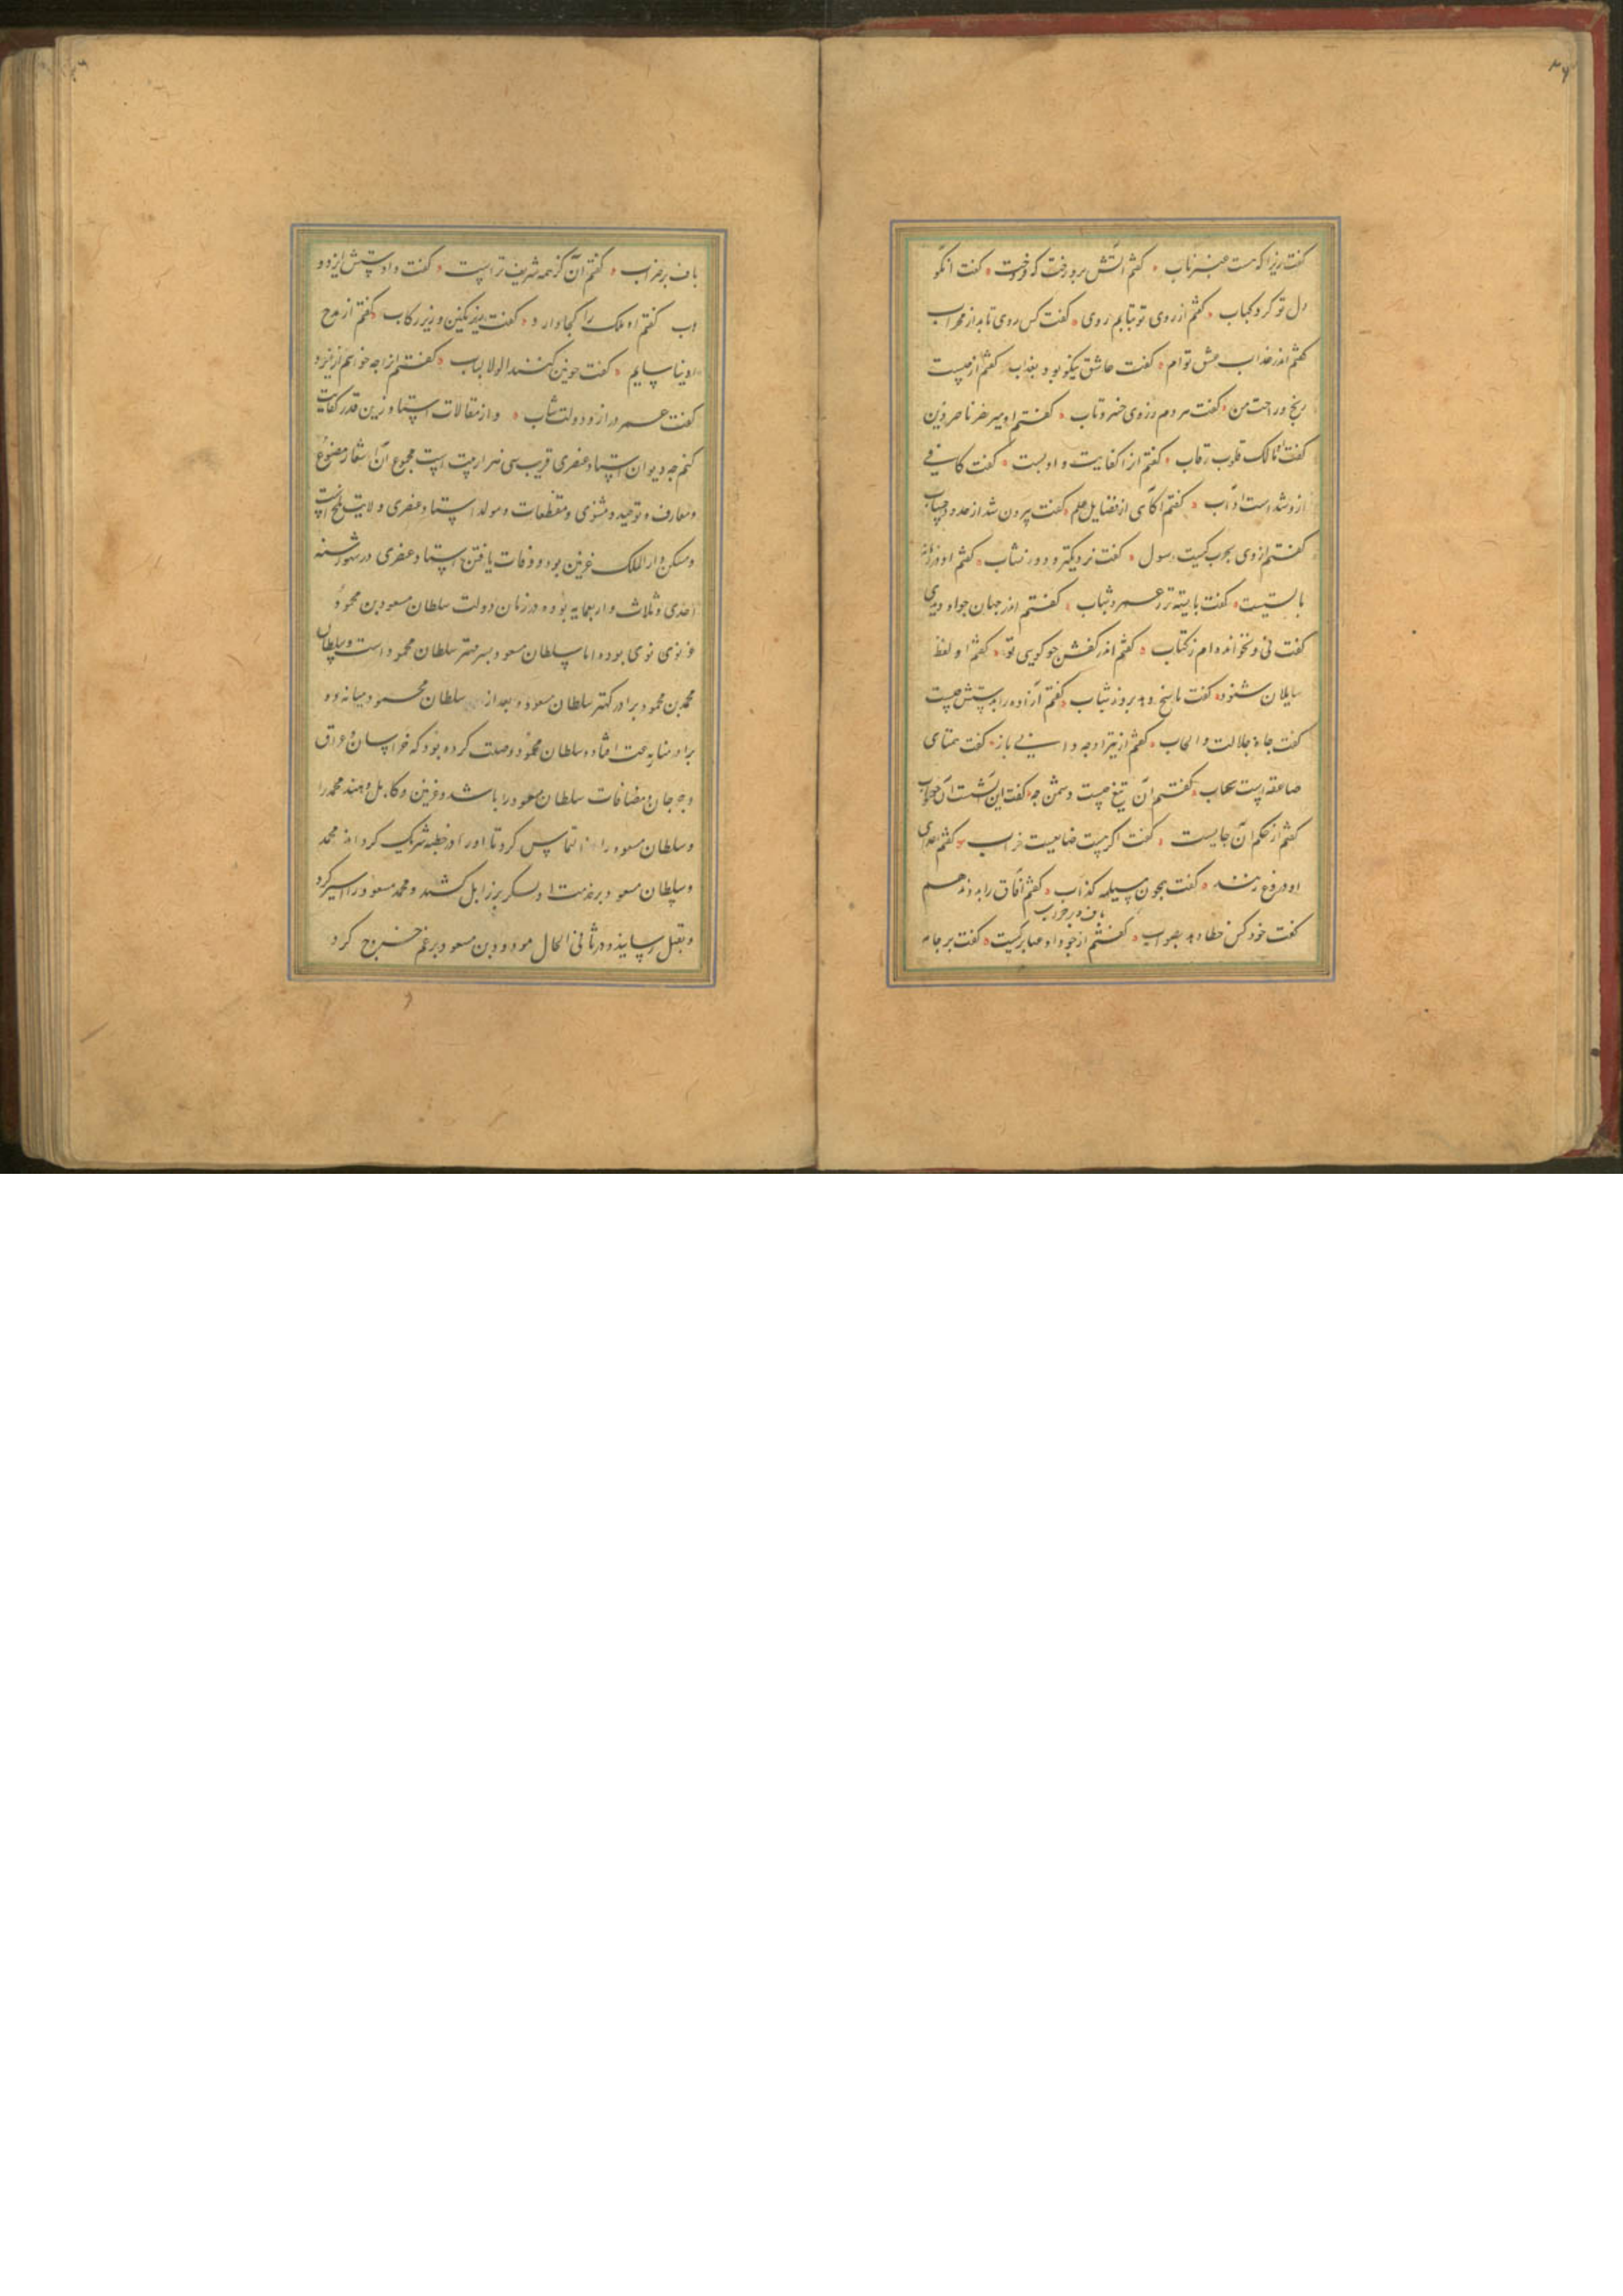 گفت زیرا که هست عنبر ناب گفتم آتش برورخت که فروخت گفت انکو
دل تو کرد کباب گفتم از روی تو نتابم روی گفت کس روی تابد از محراب
گفتم اندر عذاب عشق توام گفت عاشق نیکو بود بعذاب گفتم از چیست
رنج و راحت من گفت مردم ز روی خسرو تاب گفتم او میر نصر ناصر دین
گفت مالک قلوب رقاب گفتم از کفایت و ادبست گفت کافی
ازو شد است آداب گفتم آگاهی از فضایل علم گفت بیرون شد از حدود حساب
گفتم از وی بحرب کیست رسول گفت نزدیکتر و دور نشاب گفتم او در زمانه
بایستیست گفت بایسته تر ز عمر و شباب گفتم اندر جهان جو او دیدی
گفت نی و نخوانده ام ز کتاب گفتم اندر کفش جو کویی تو گفتم او لفظ
سایلان شنود گفت پاسخ دهد بروز شتاب گفتم آزاده را بدستش چیست
گفت جاه و جلالت و ایجاب گفتم از تیر او جه دانی باز گفت همتای
صاعقه است شهاب گفتم آن تیغ چیست دشمن جه گفت این آتشست آن سیماب
گفتم از حکم آن جایست گفت اگر هست ضایعست خراب گفتم اعدای
او دروغ زنند گفت همجون مسیلمه کذاب گفتم آفاق را بدو دهم
گفت خود کس خطا دهد بصواب گفتم از جود او عنا بر کیست گفت بر جامه
باف و بر ضراب
باف و بر ضراب گفتم آن کز همه شریف تر است گفت دادستش ایزد و
هاب گفتم او ملک را کجا دارد گفت زیر نکین و زیر رکاب گفتم از مدح
او نیاسایم گفت جونین کنند اولو الالباب گفتم او را جه خواهم از ایزد
گفت عمر دراز و دولت شاب و از مقالات استاد بدین قدر کفایت
کنم جه دیوان استاد عنصری قریب سی هزار بیت است مجموع آن اشعار مصنوع
و معارف و توحید و مثنوی و مقطعات و مولد استاد عنصری ولایت بلخ است
و مسکن دار الملک غزنین بوده و وفات یافتن استاد عنصری در شهور سنه
احدی و ثلاث و اربعمایه بوده در زمان دولت سلطان مسعود بن محمود
غزنوی بوده اما سلطان مسعود پسر مهتر سلطان محمود است و سلطان
محمد بن محمود برادر کهتر سلطان مسعود و بعد از سلطان محمود میانه دو
برادر منازعت افتاد و سلطان محمود وصلت کرده بود که خراسان و عراق
و جرجان و مضافات سلطان مسعود را باشد و غزنین و کابل و هند محمد را
و سلطان مسعود را التماس کرد تا او را در خطبه شریک کرداند محمد
و سلطان مسعود بر خدمت او لشکر بزابل کشید و محمد مسعود را اسیر کرد
و بقتل رسانید و در ثانی الحال مودود بن مسعود بر عم خروج کرد